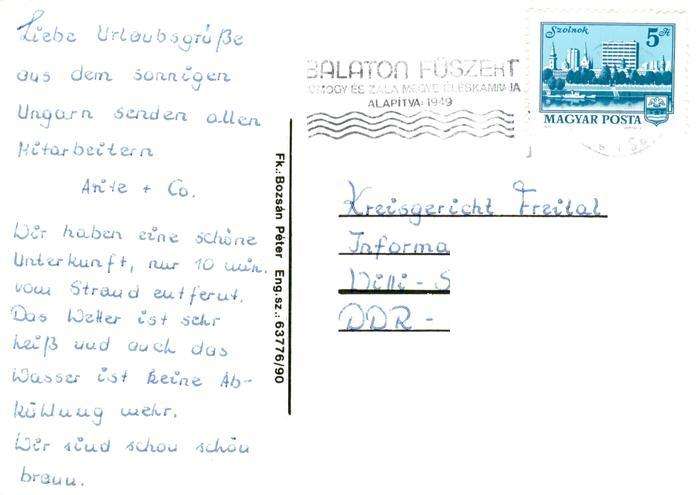 Liebe Urlaubsgrüße
aus dem sonnigen
Ungarn senden allen
Mitarbeitern
+ Co.
Wir haben eine schöne
Unterkunft, nur 10 min.
vom Strand entfernt.
Das Wetter ist sehr
heiß und auch das
Wasser ist keine Ab-
kühlung mehr.
Wir sind schon schön
braun.
Fk.: Bozsán Péter Eng.sz.: 63776/90
BALATON FŰSZERT
ALAPÍTVA: 1949
Szolnok
5 Ft
MAGYAR POSTA
Kreisgericht Freital
Informa
Willi - S
DDR -